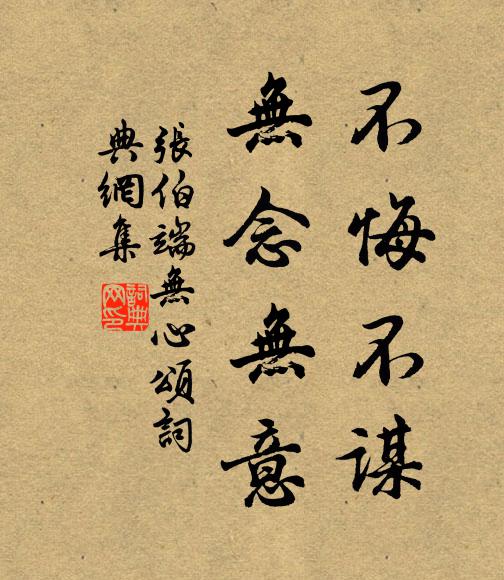 不悔不謀
無念無意
張伯端無心頌詞
典網集
詞典
网印